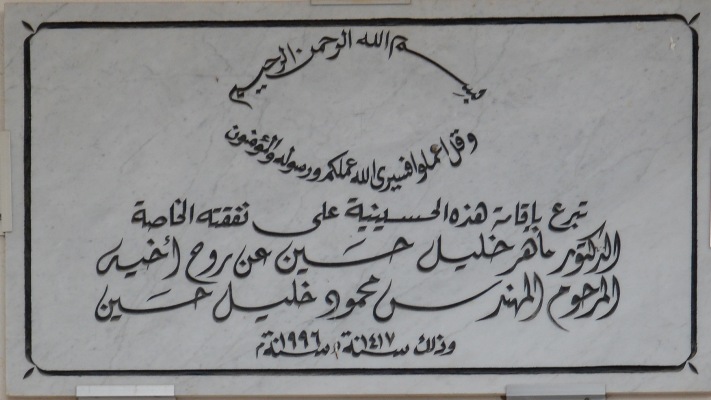 بسم الله الرحمن الرحيم
وقل اعملوا فسيرى الله عملكم ورسوله والمؤمنون
تبرع بإقامة هذه الحسينية على نفقته الخاصة
الدكتور ماهر خليل حسين عن روح أخيه
المرحوم المهندس محمود خليل حسين
وذلك سنة ١٤١٧هـ سنة ١٩٩٦م